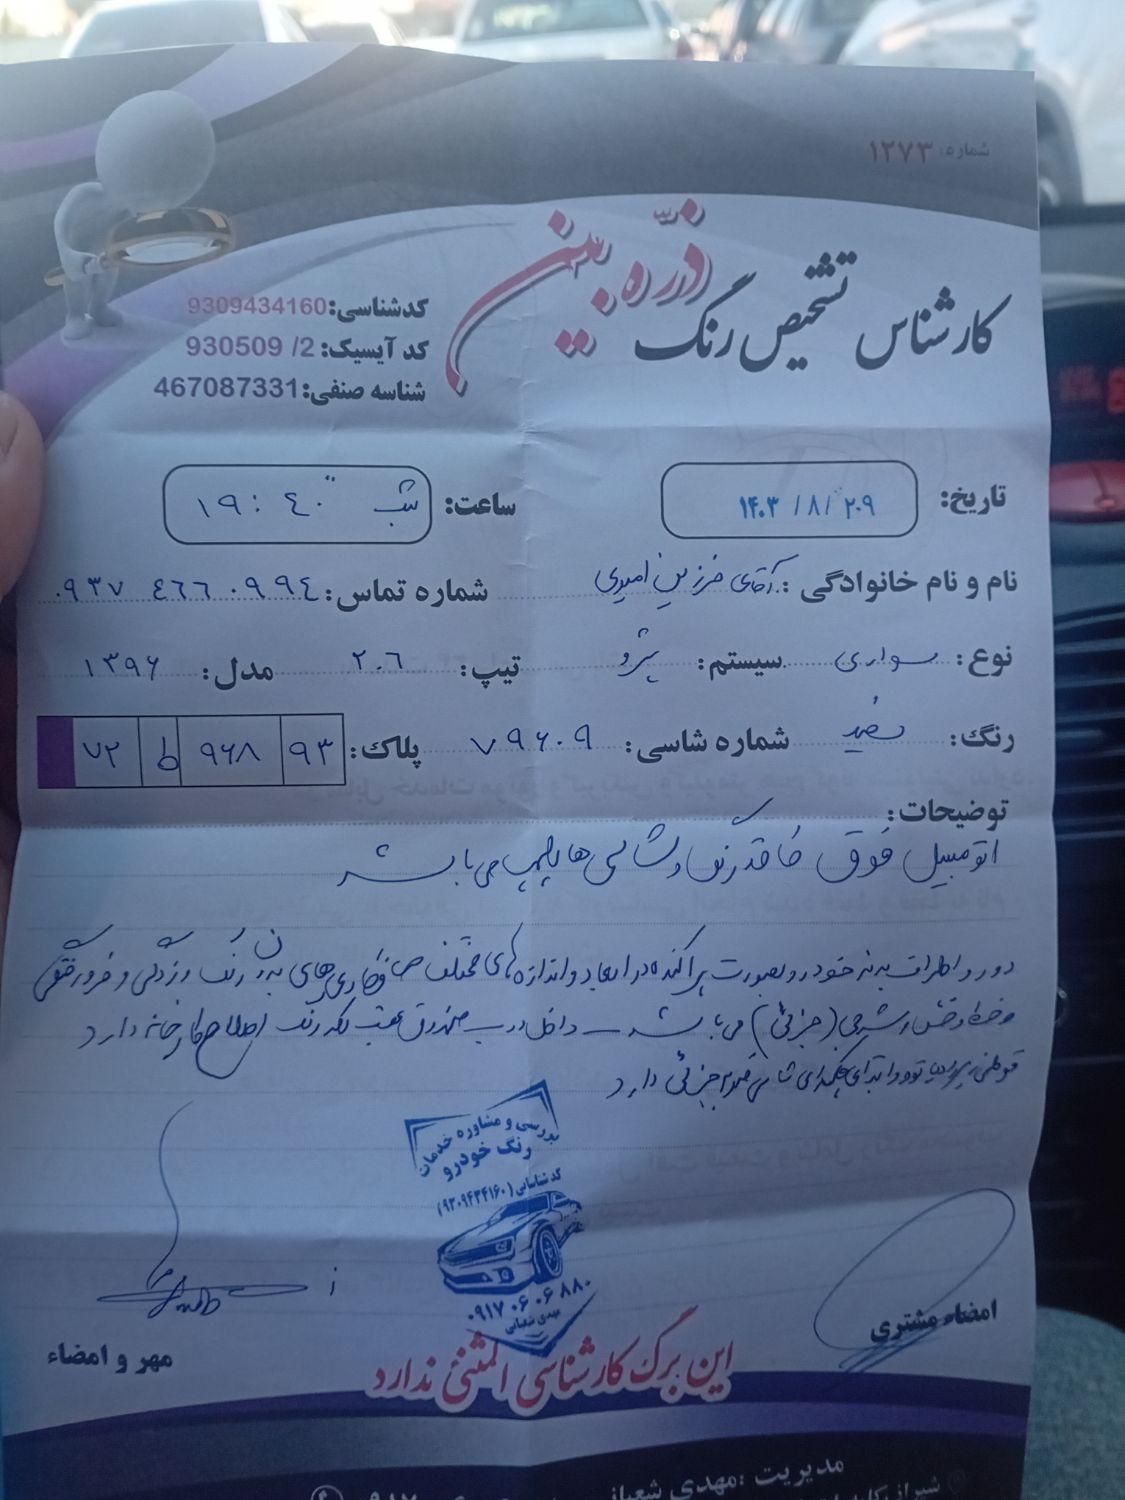 شماره: ۱۲۷۳
کارشناس تشخیص رنگ ذرّه بین
کدشناسی: 9309434160
کد آیسیک: 2/ 930509
شناسه صنفی: 467087331
تاریخ: ۱۴۰۳ /۸/ ۲۰۹ ساعت: ۱۹:۴۰" شب
نام و نام خانوادگی: آقای فرزین امیدی شماره تماس: ۰۹۳۷ ۴۶۶ ۰۹۹۴
نوع: سواری سیستم: پژو تیپ: ۲۰۶ مدل: ۱۳۹۶
رنگ: سفید شماره شاسی: ۷۹۶۰۹ پلاک: ۷۲ ط ۹۶۸ ۹۳
توضیحات:
اتومبیل فوق فاقد رنگ و شاسی ها پلمپ می باشد
دور و اطراف بدنه خودرو بصورت پراکنده در ابعاد و اندازه های مختلف صافکاری های بدون رنگ و زدگی و فرورفتگی
و خط و خش و (جزئی) می باشد – داخل درب صندوق عقب لکه رنگ اصلاح کارخانه دارد
دارد
بررسی و مشاوره خدمات
رنگ خودرو
کدشناسایی (۹۳۰۹۴۳۴۱۶۰)
۰۹۱۷ ۰۶ ۰۶ ۸۸۰
مهدی شعبانی
امضاء مشتری
مهر و امضاء
این برگ کارشناسی المثنی ندارد
مدیریت: مهدی شعبانی